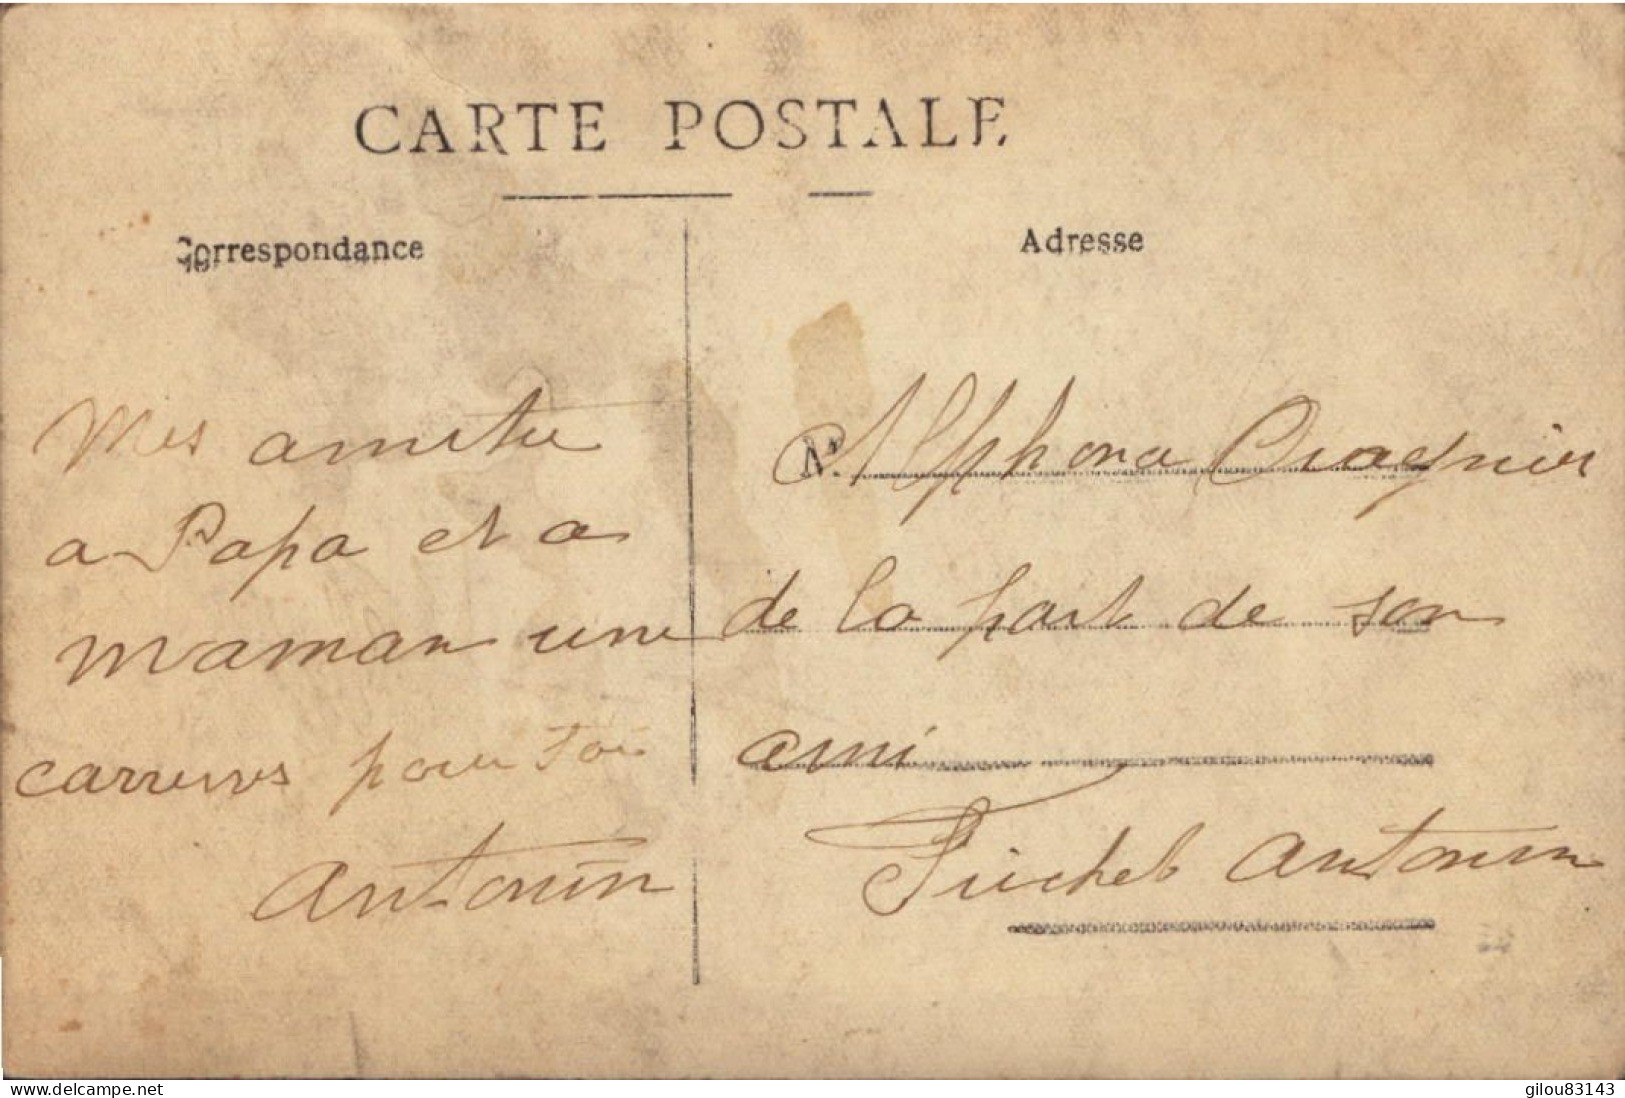 CARTE POSTALE
Correspondance
Adresse
Mes amitie
a Papa et a
maman une
carresses pour toi
Antonin
M. Alphonse
de la part de son
ami
Antonin
www.delcampe.net
gilou83143